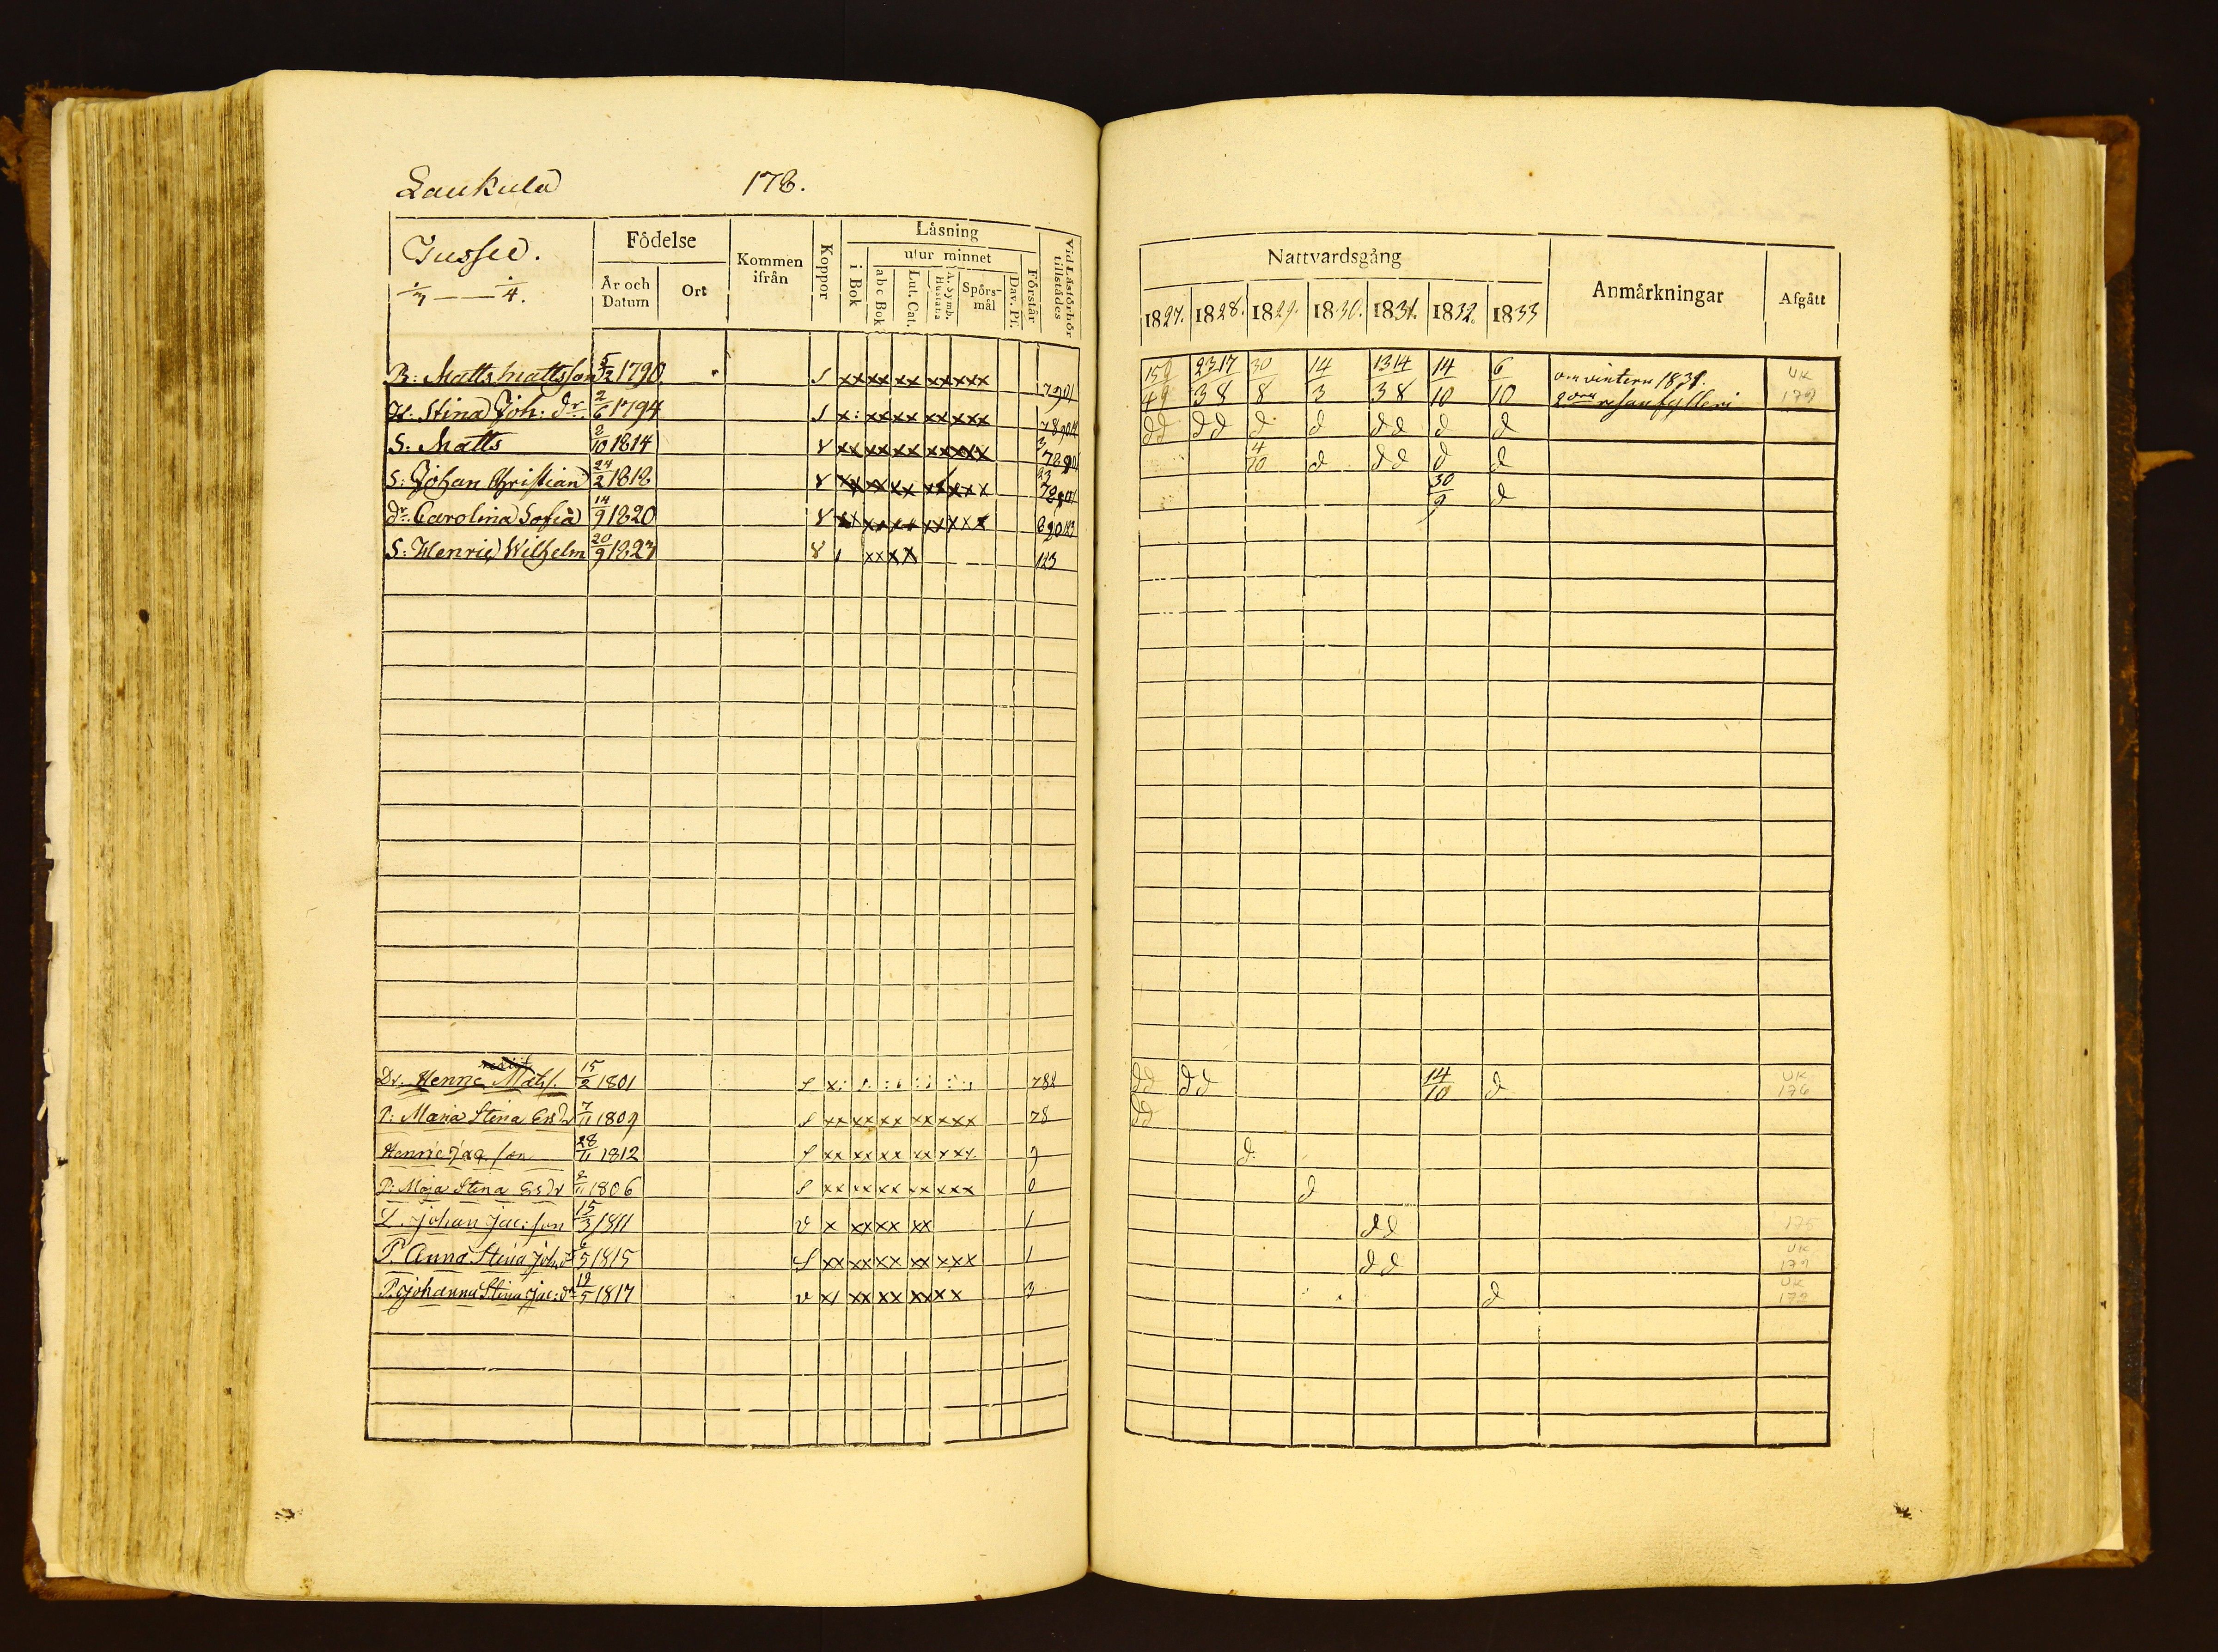 Laukula 178.
Jussil.
1/7 — 1/4.
Födelse
År och Datum
Ort
Kommen ifrån
Koppor
Läsning
i Bok
utur minnet
abc Bok
Lut. Cat.
A. Symb. Hustafla
Spörsmål
Dav. Ps.
Förstår
Vid Läsförhör tillstådes
B: Matts Mattsson 5/12 1790 s xx xx xx xx xxx
H: Stina Joh: dr 2/6 1794 s x: xx xx xx xxx
S: Matts 2/10 1814 v xx xx xx xx xxx
S: Johan Christian 24/2 1818 v xx xx xx xx xxx
dr Carolina Sofia 14/9 1820 v xx xx xx xx xxx
S: Henric Wilhelm 20/9 1827 v xx xx 123
Dr: Henric Mats. 15/2 1801 s x: 782
P: Maria Stina Ersdr 7/11 1809 s xx xx xx xx xxx 78
Henric Jac.son 28/11 1812 s xx xx xx xx xxx 9
P: Maja Stina Ersdr 2/11 1806 s xx xx xx xx xxx 0
D. Johan Jac:son 15/3 1811 v x xx xx xx 1
P. Anna Stina Joh.dr 6/5 1815 s xx xx xx xx xxx 1
P Johanna Stina Jac:dr 12/5 1817 v x/ xx xx xx xx 3
Nattvardsgång
1827. 1828. 1829. 1830. 1831. 1832. 1833
Anmärkningar
Afgått
23 17 30 14 13 14 14 6
3 8 8 3 3 8 10 10
om vintern 1831.
2dra resan fylleri
UK
179
dd dd d d dd d d
4/10 d dd d d
30/9 d
dd dd 14/10 d UK 176
dd
d
d
dd 175
dd UK 179
d UK 172